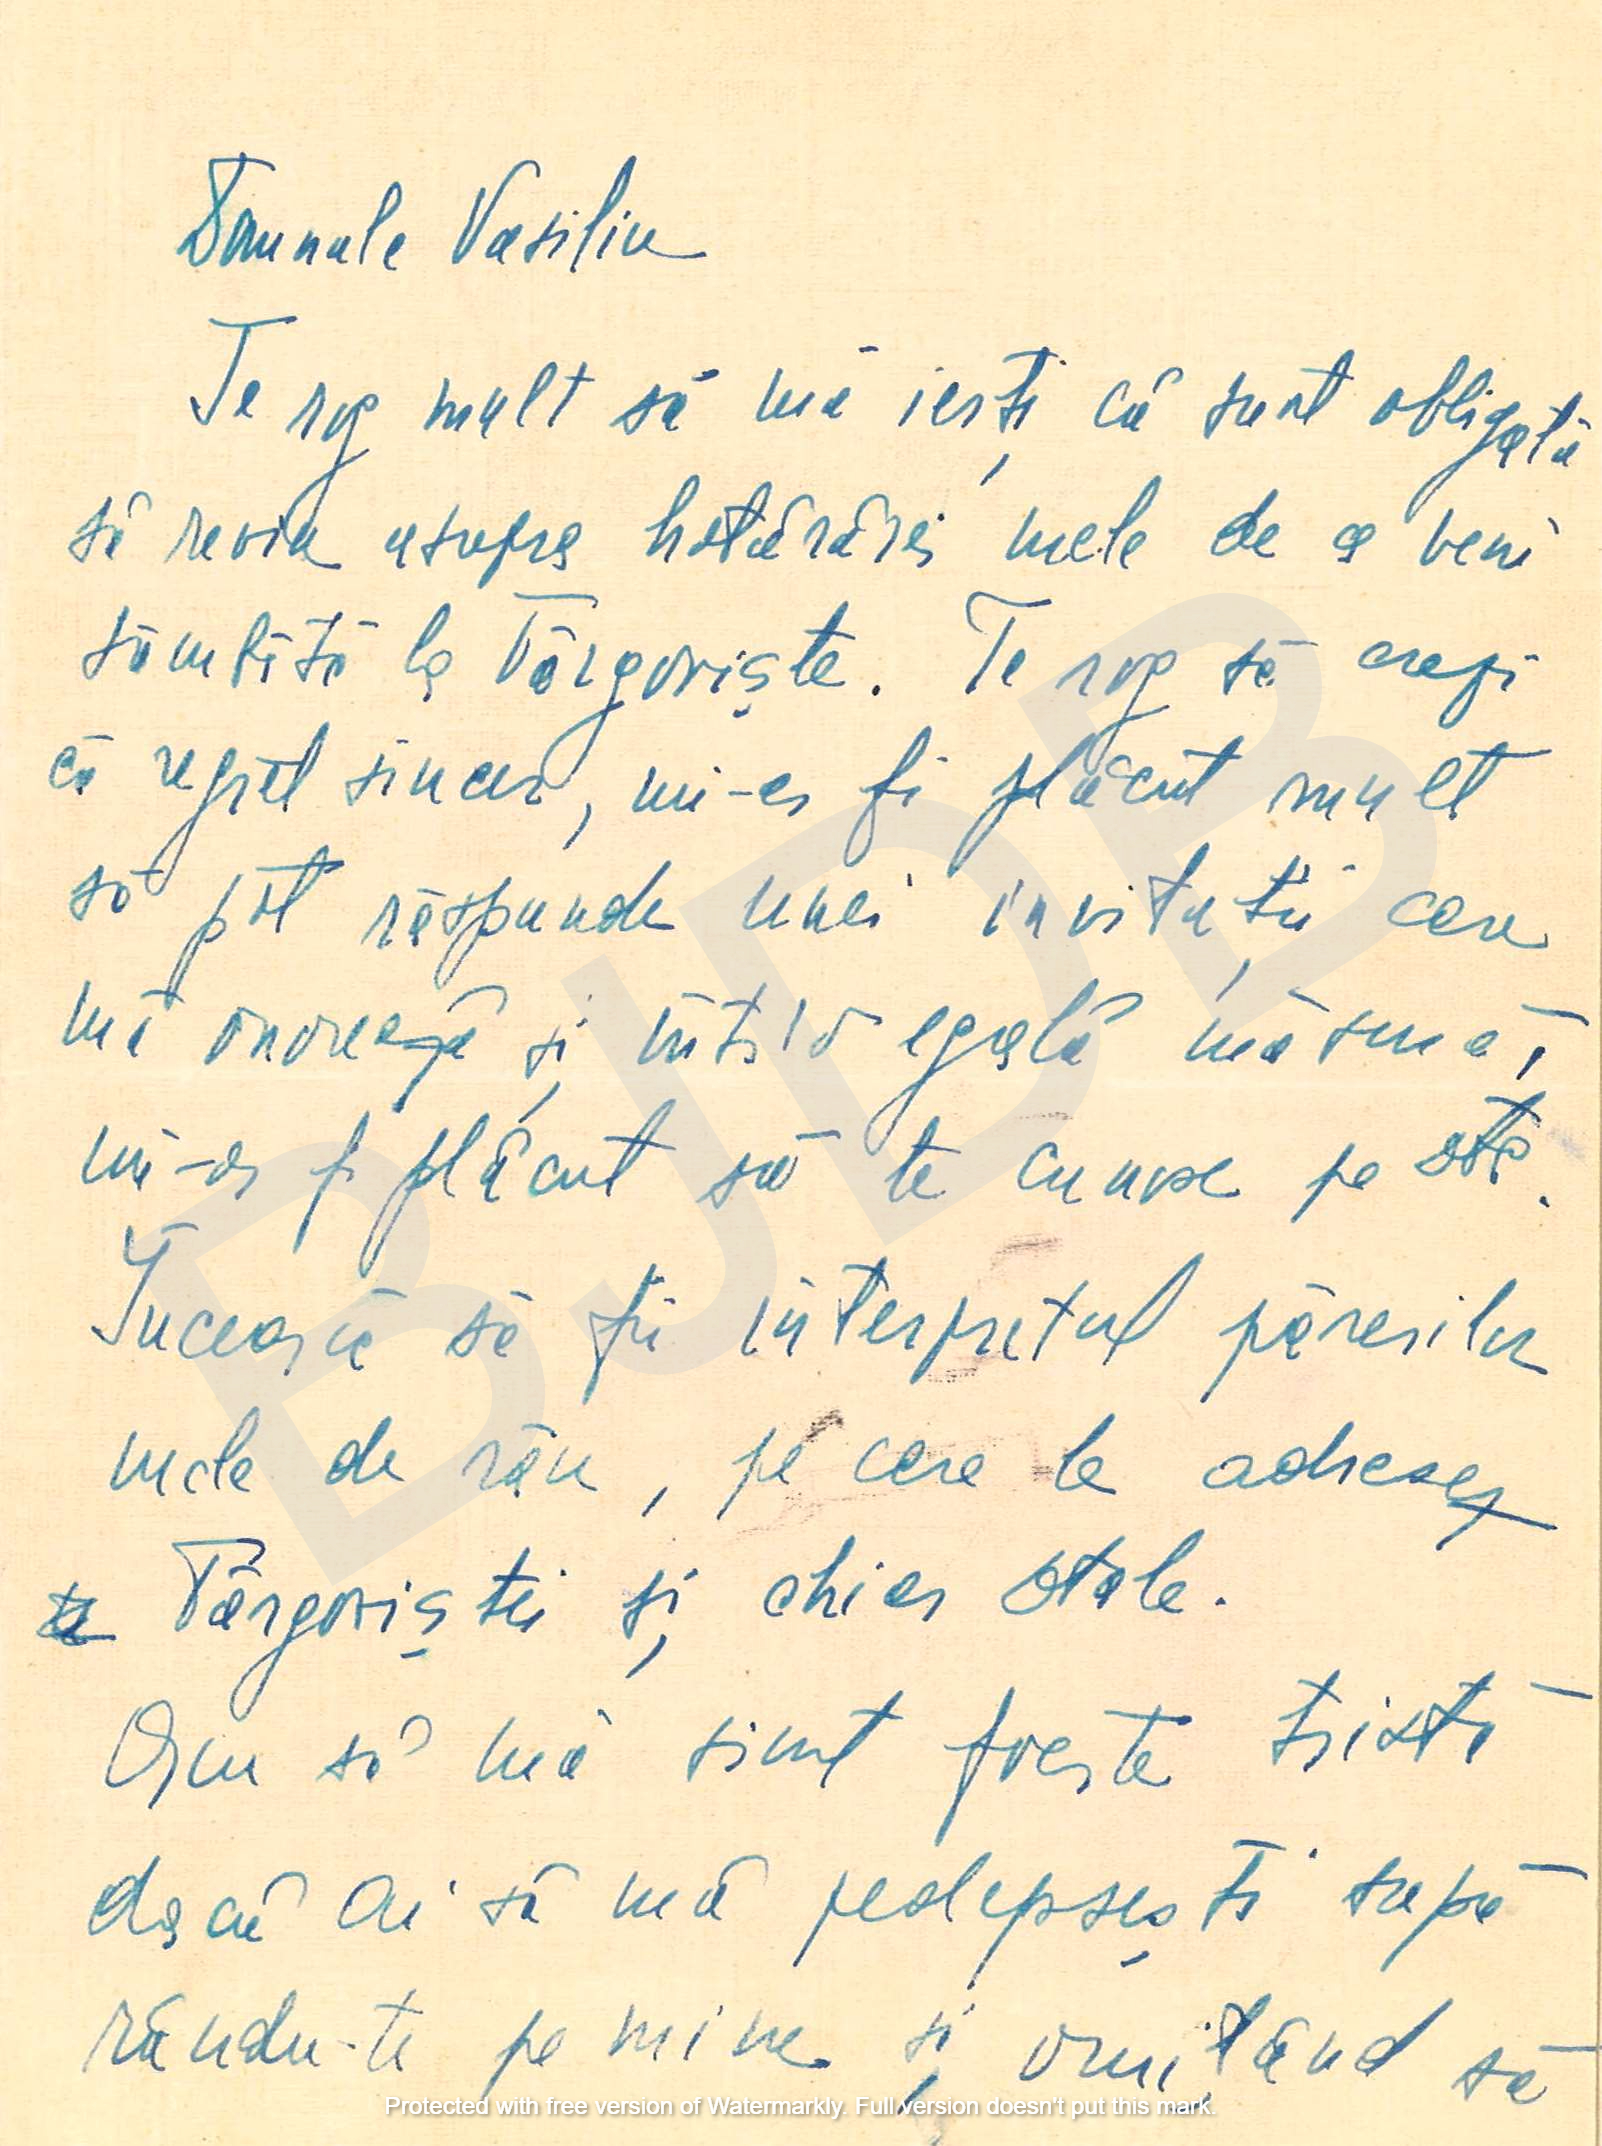 Domnule Vasiliu
Te rog mult să mă ierți că sunt obligată
să revin asupra hotărârei mele de a veni
sâmbătă la Târgoviște. Te rog să crezi
că regret sincer, mi-ar fi plăcut mult
să pot răspunde unei invitații care
mă onorează și într'o egală măsură,
mi-ar fi plăcut să te cunosc pe dta.
Încearcă să fii interpretul părerilor
mele de rău, pe care le adresez
Târgoviștei și chiar dtale.
Am să mă simt foarte tristă
dacă ai să mă pedepsești supă
rându-te pe mine și omițând să
BJDB
Protected with free version of Watermarkly. Full version doesn't put this mark.